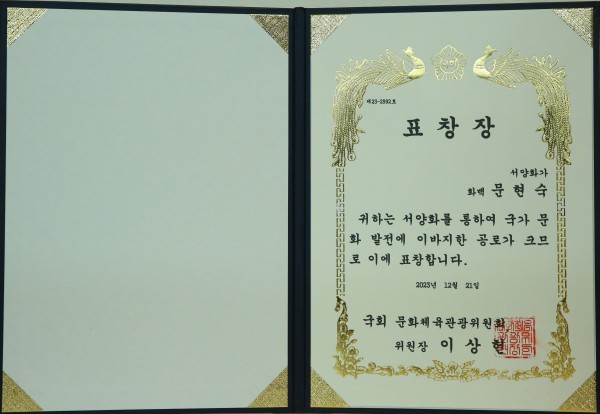 제23-2892호
표창장
서양화가
화백 문현숙
귀하는 서양화를 통하여 국가 문
화 발전에 이바지한 공로가 크므
로 이에 표창합니다.
2023년 12월 21일
국회 문화체육관광위원회
위원장 이상헌